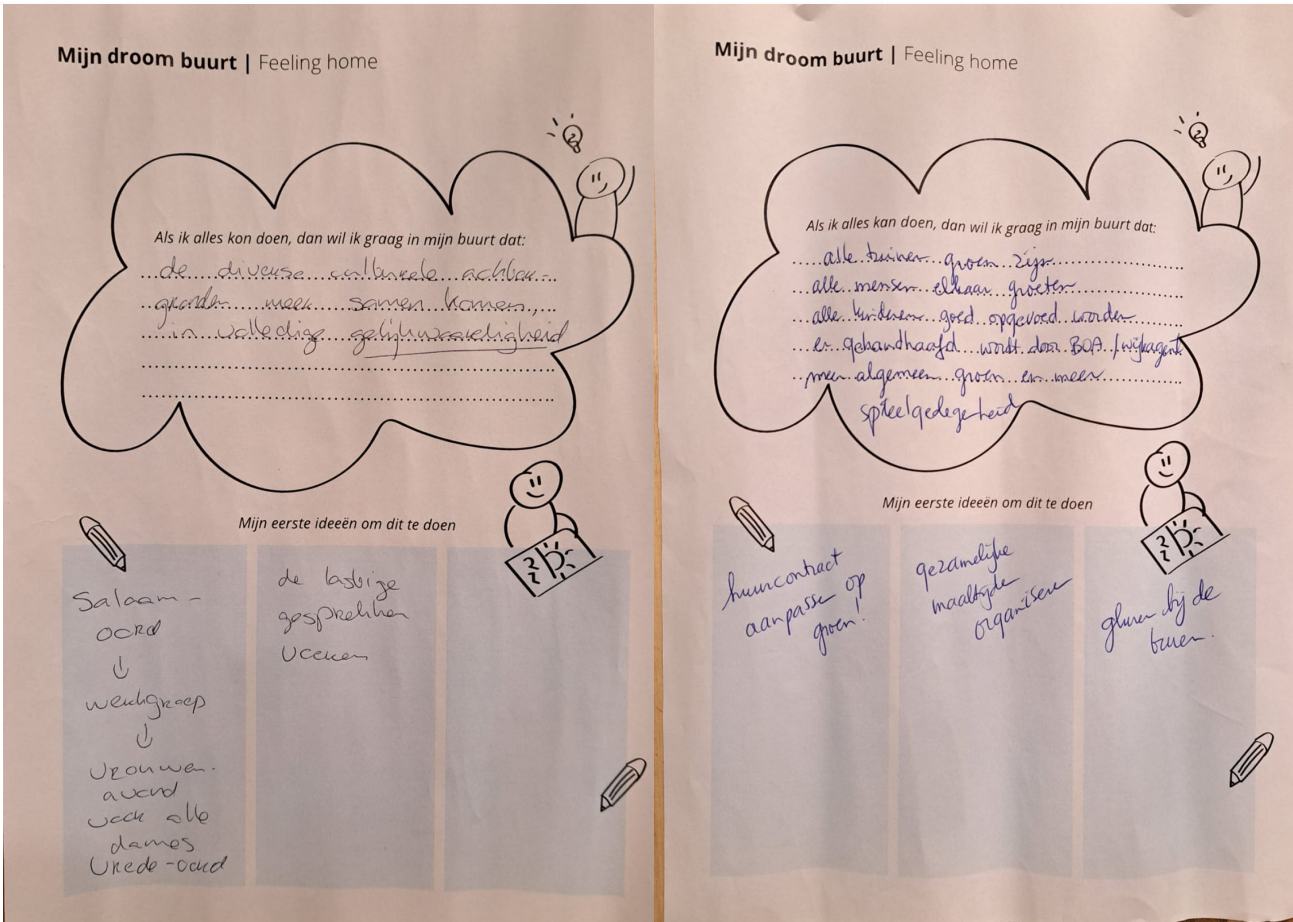 Mijn droom buurt | Feeling home
Als ik alles kon doen, dan wil ik graag in mijn buurt dat:
de diverse culturele achter-
gronden meer samen komen,
in volledige gelijkwaardigheid
Mijn eerste ideeën om dit te doen
Salaam -
oord
↓
werkgroep
↓
Vrouwen-
avond
voor alle
dames
Vrede-oord
de lastige
gesprekken
voeren
Mijn droom buurt | Feeling home
Als ik alles kan doen, dan wil ik graag in mijn buurt dat:
alle tuinen groen zijn
alle mensen elkaar groeten
alle kinderen goed opgevoed worden
er gehandhaafd wordt door BOA / wijkagent
meer algemeen groen en meer
speelgelegenheid
Mijn eerste ideeën om dit te doen
huurcontract
aanpassen op
groen!
gezamelijke
maaltijden
organiseren
gluren bij de
buren.